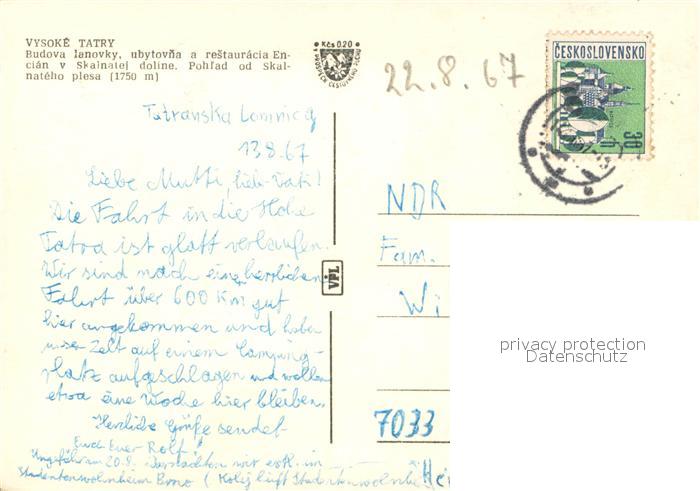 VYSOKÉ TATRY
Budova lanovky, ubytovňa a reštaurácia En-
cián v Skalnatej doline. Pohľad od Skal-
natého plesa (1750 m)
Kčs 0,20
22.8.67
ČESKOSLOVENSKO
30 h
Tatranska Lomnica
13.8.67
Liebe Mutti, lieb. Vati!
Die Fahrt in die Hohe
Tatra ist glatt verlaufen.
Wir sind nach einer herrlichen
Fahrt über 600 Km gut
hier angekommen und haben
unser Zelt auf einem Camping-
platz aufgeschlagen und wollen
etwa eine Woche hier bleiben.
Herzliche Grüße sendet
Euch Euer Rolf!
Ungefähr am 20.8. wir evtl. in
Studentenwohnheim Brno (
NDR
Fam.
Wi
7033
VPL
privacy protection
Datenschutz